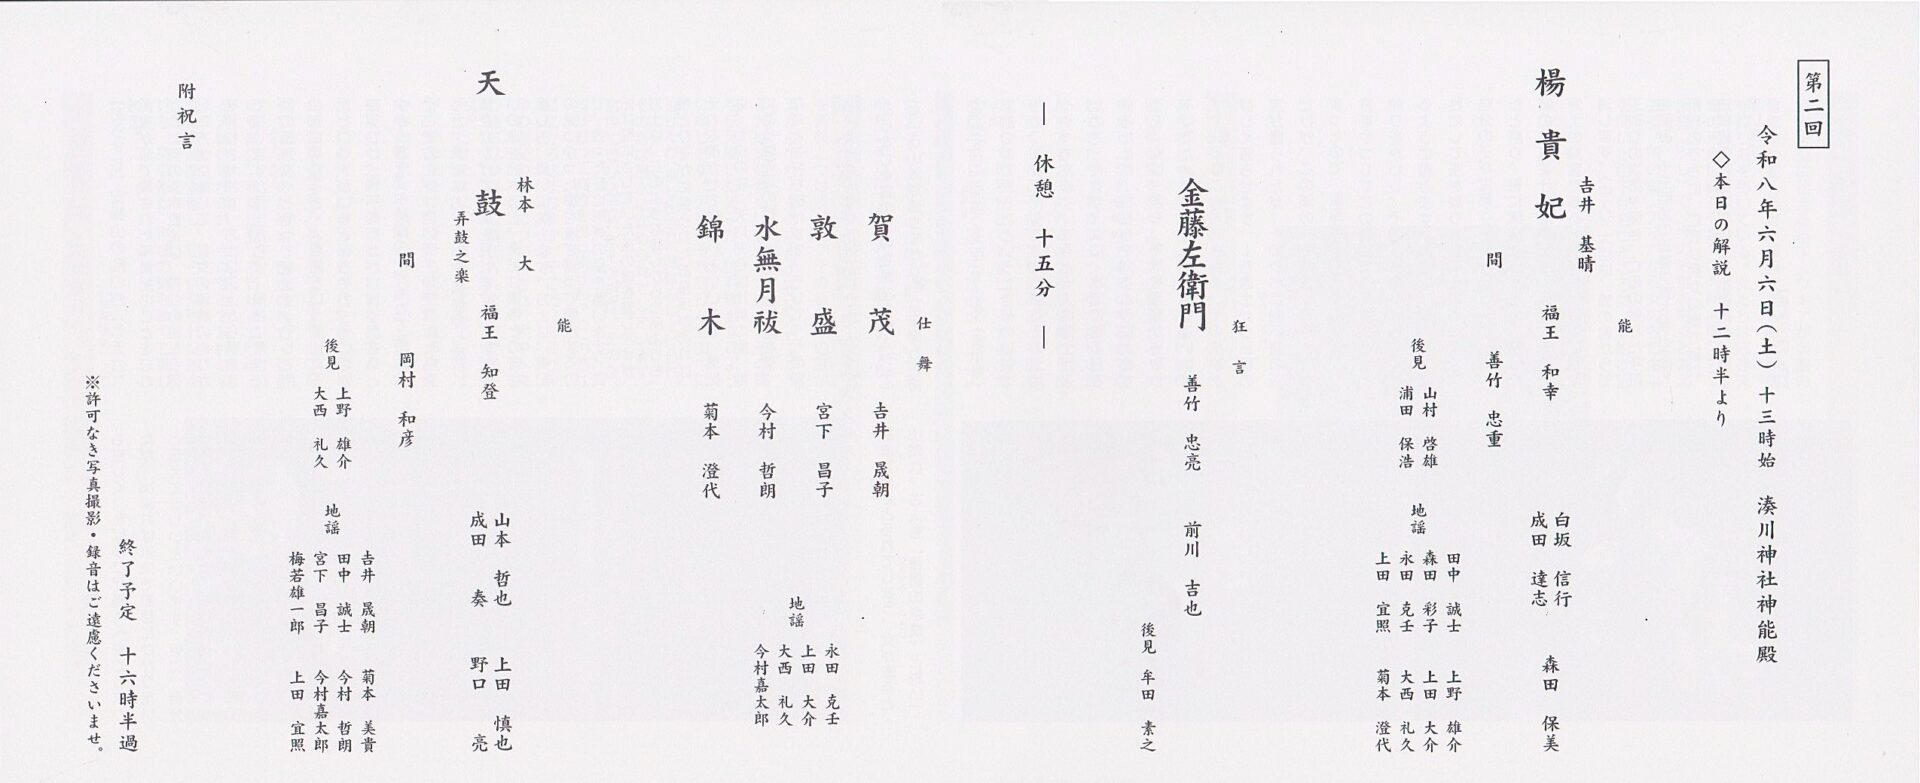 第二回
令和八年六月六日（土） 十三時始　湊川神社神能殿
◇本日の解説　十二時半より
能
吉井　基晴
楊貴妃　福王　和幸　白坂　信行　森田　保美
成田　達志
間　善竹　忠重
後見　山村　啓雄
浦田　保浩
地謡　田中　誠士　上野　雄介
森田　彩子　上田　大介
永田　克壬　大西　礼久
上田　宜照　菊本　澄代
狂言
金藤左衛門　善竹　忠亮　前川　吉也
後見　牟田　素之
― 休憩　十五分 ―
仕舞
賀茂　吉井　晟朝
敦盛　宮下　昌子
水無月祓　今村　哲朗
錦木　菊本　澄代
地謡　永田　克壬
上田　大介
大西　礼久
今村嘉太郎
能
林本　大
天鼓　福王　知登　山本　哲也　上田　慎也
弄鼓之楽　成田　奏　野口　亮
間　岡村　和彦
後見　上野　雄介
大西　礼久
地謡　吉井　晟朝　菊本　美貴
田中　誠士　今村　哲朗
宮下　昌子　今村嘉太郎
梅若雄一郎　上田　宜照
附祝言
終了予定　十六時半過
※許可なき写真撮影・録音はご遠慮くださいませ。